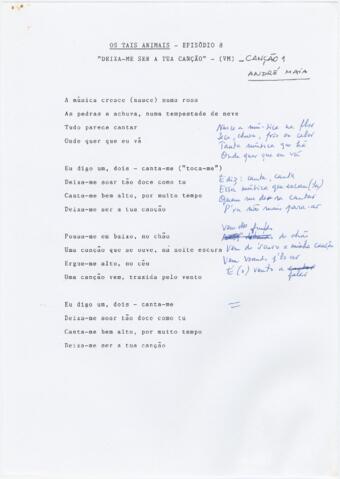 OS TAIS ANIMAIS - EPISÓDIO 8
"DEIXA-ME SER A TUA CANÇÃO" - (VM) - CANÇÃO 1
ANDRÉ MAIA
A música cresce (nasce) numa rosa
As pedras e achuva, numa tempestade de neve
Tudo parece cantar
Onde quer que eu vá
Nasce a mú-sica na flor
Seja, chuva, frio ou calor
Tanta música que há
Onde quer que eu vá
Eu digo um, dois - canta-me ("toca-me")
Deixa-me soar tão doce como tu
Canta-me bem alto, por muito tempo
Deixa-me ser a tua canção
E diz: canta, canta
Essa música que
Quem me dera cantar
P'ra não mais parar
Pousa-me em baixo, no chão
Uma canção que se ouve, ná noite escura
Ergue-me alto, no céu
Uma canção vem, trazida pelo vento
Vem do fundo
do chão
Vem do escuro a minha canção
Vem
E (o) vento a
falar
Eu digo um, dois - canta-me
Deixa-me soar tão doce como tu
Canta-me bem alto, por muito tempo
Deixa-me ser a tua canção
=